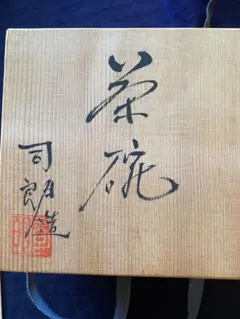 茶碗
司郎造